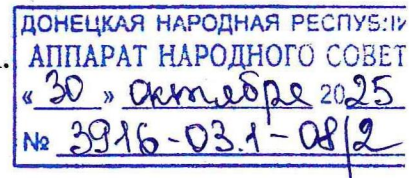 ДОНЕЦКАЯ НАРОДНАЯ РЕСПУБЛИ
АППАРАТ НАРОДНОГО СОВЕТ
«30» октября 2025
№ 3916-03.1-08/2